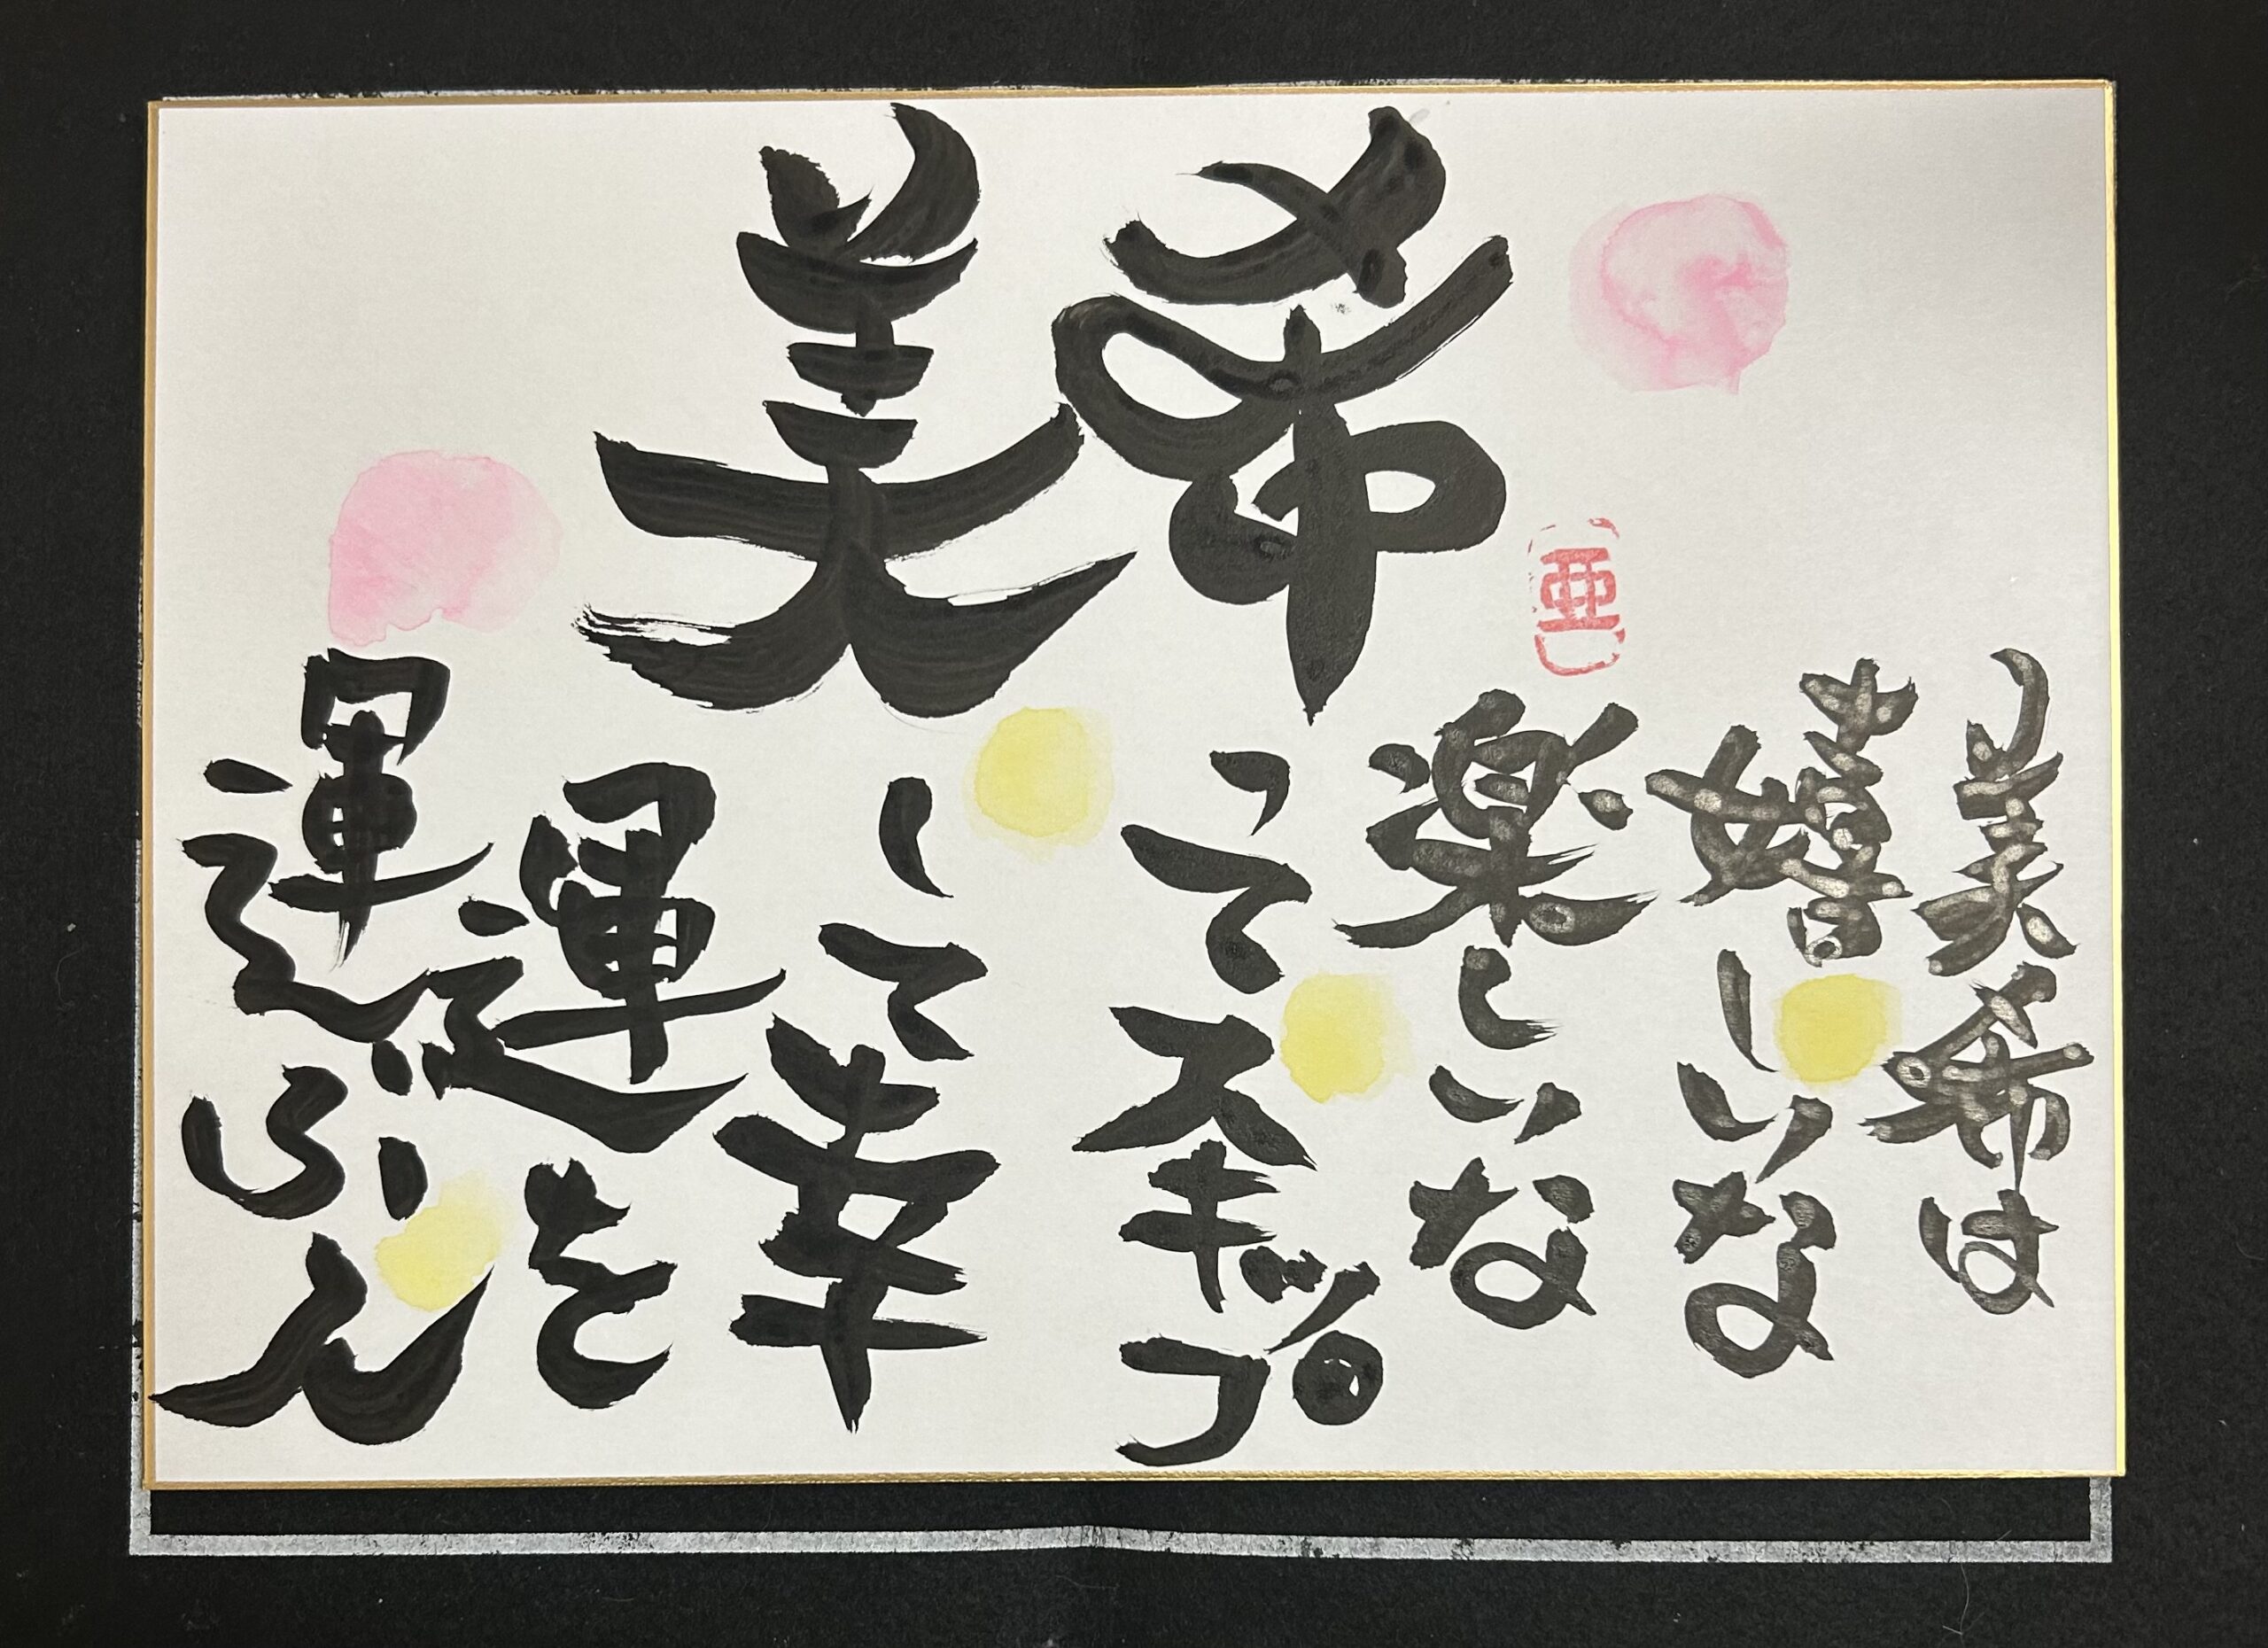 美希
亜
美希は
嬉しいな
楽しいな
ってスキップ
して幸
運を
運ぶん